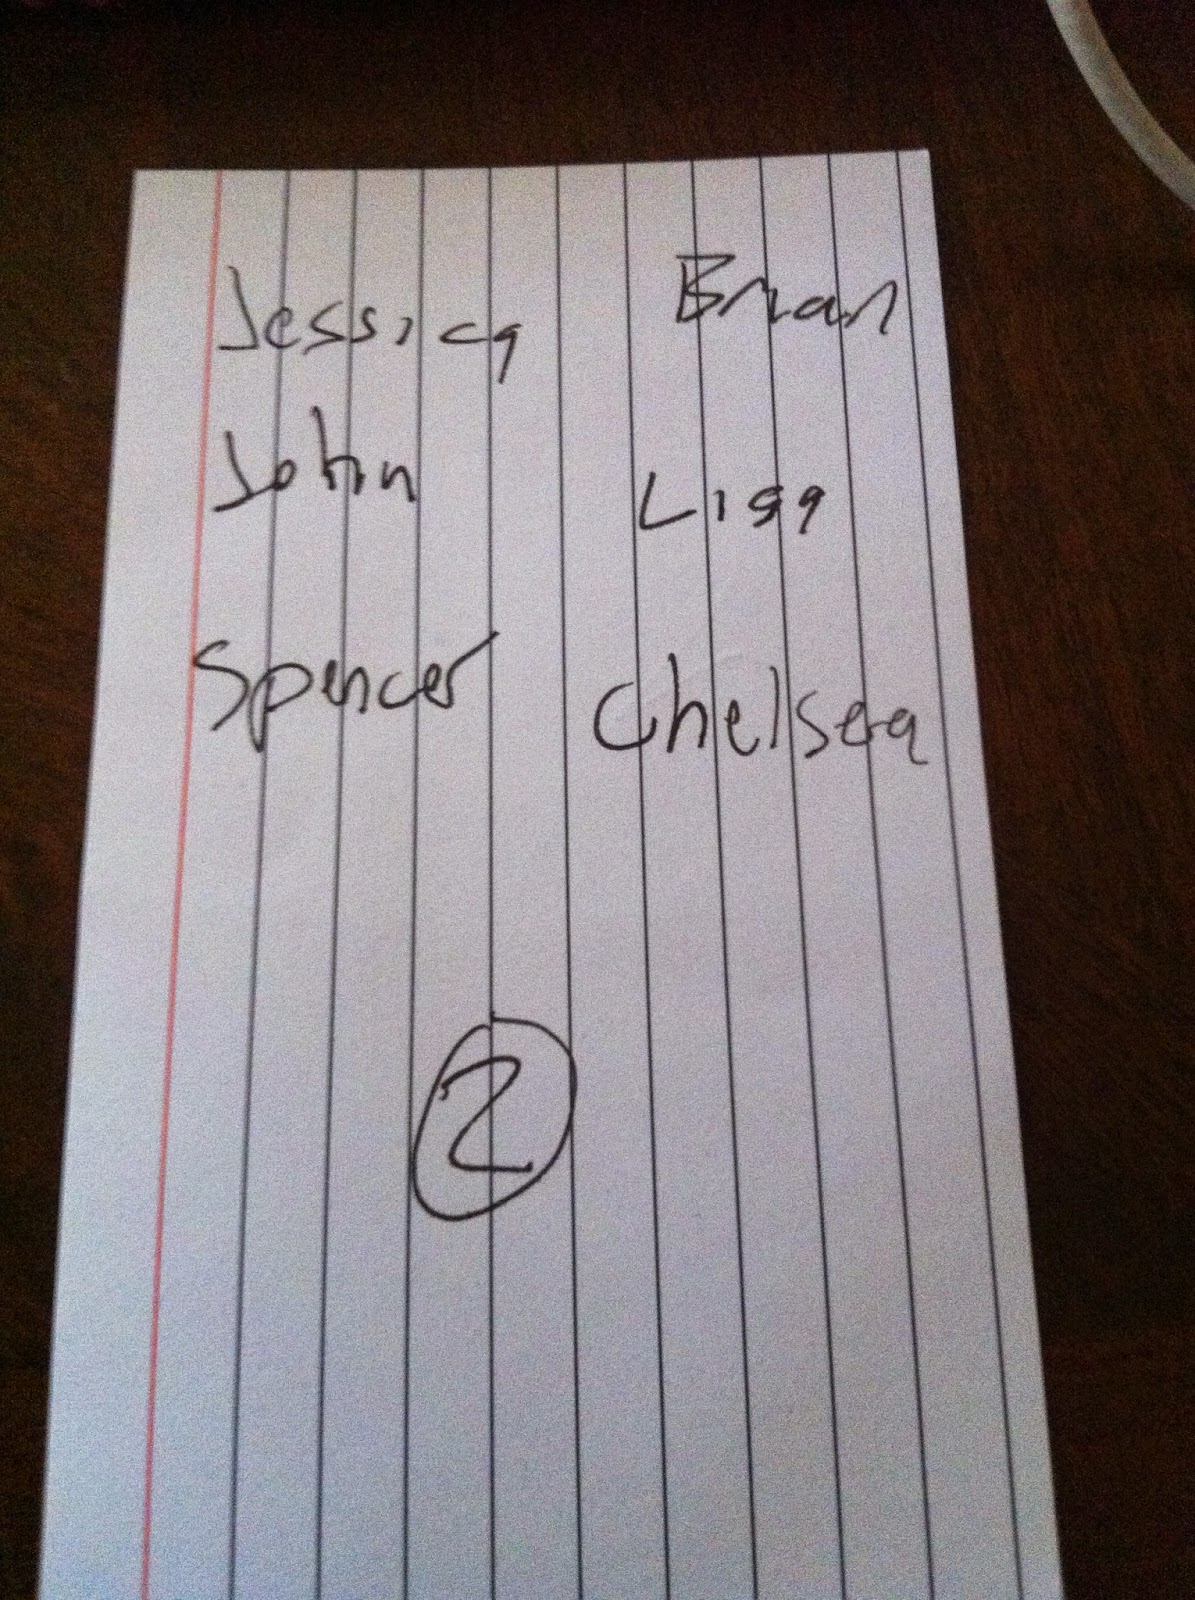 Jessica Brian
John Lisa
Spencer Chelsea
2